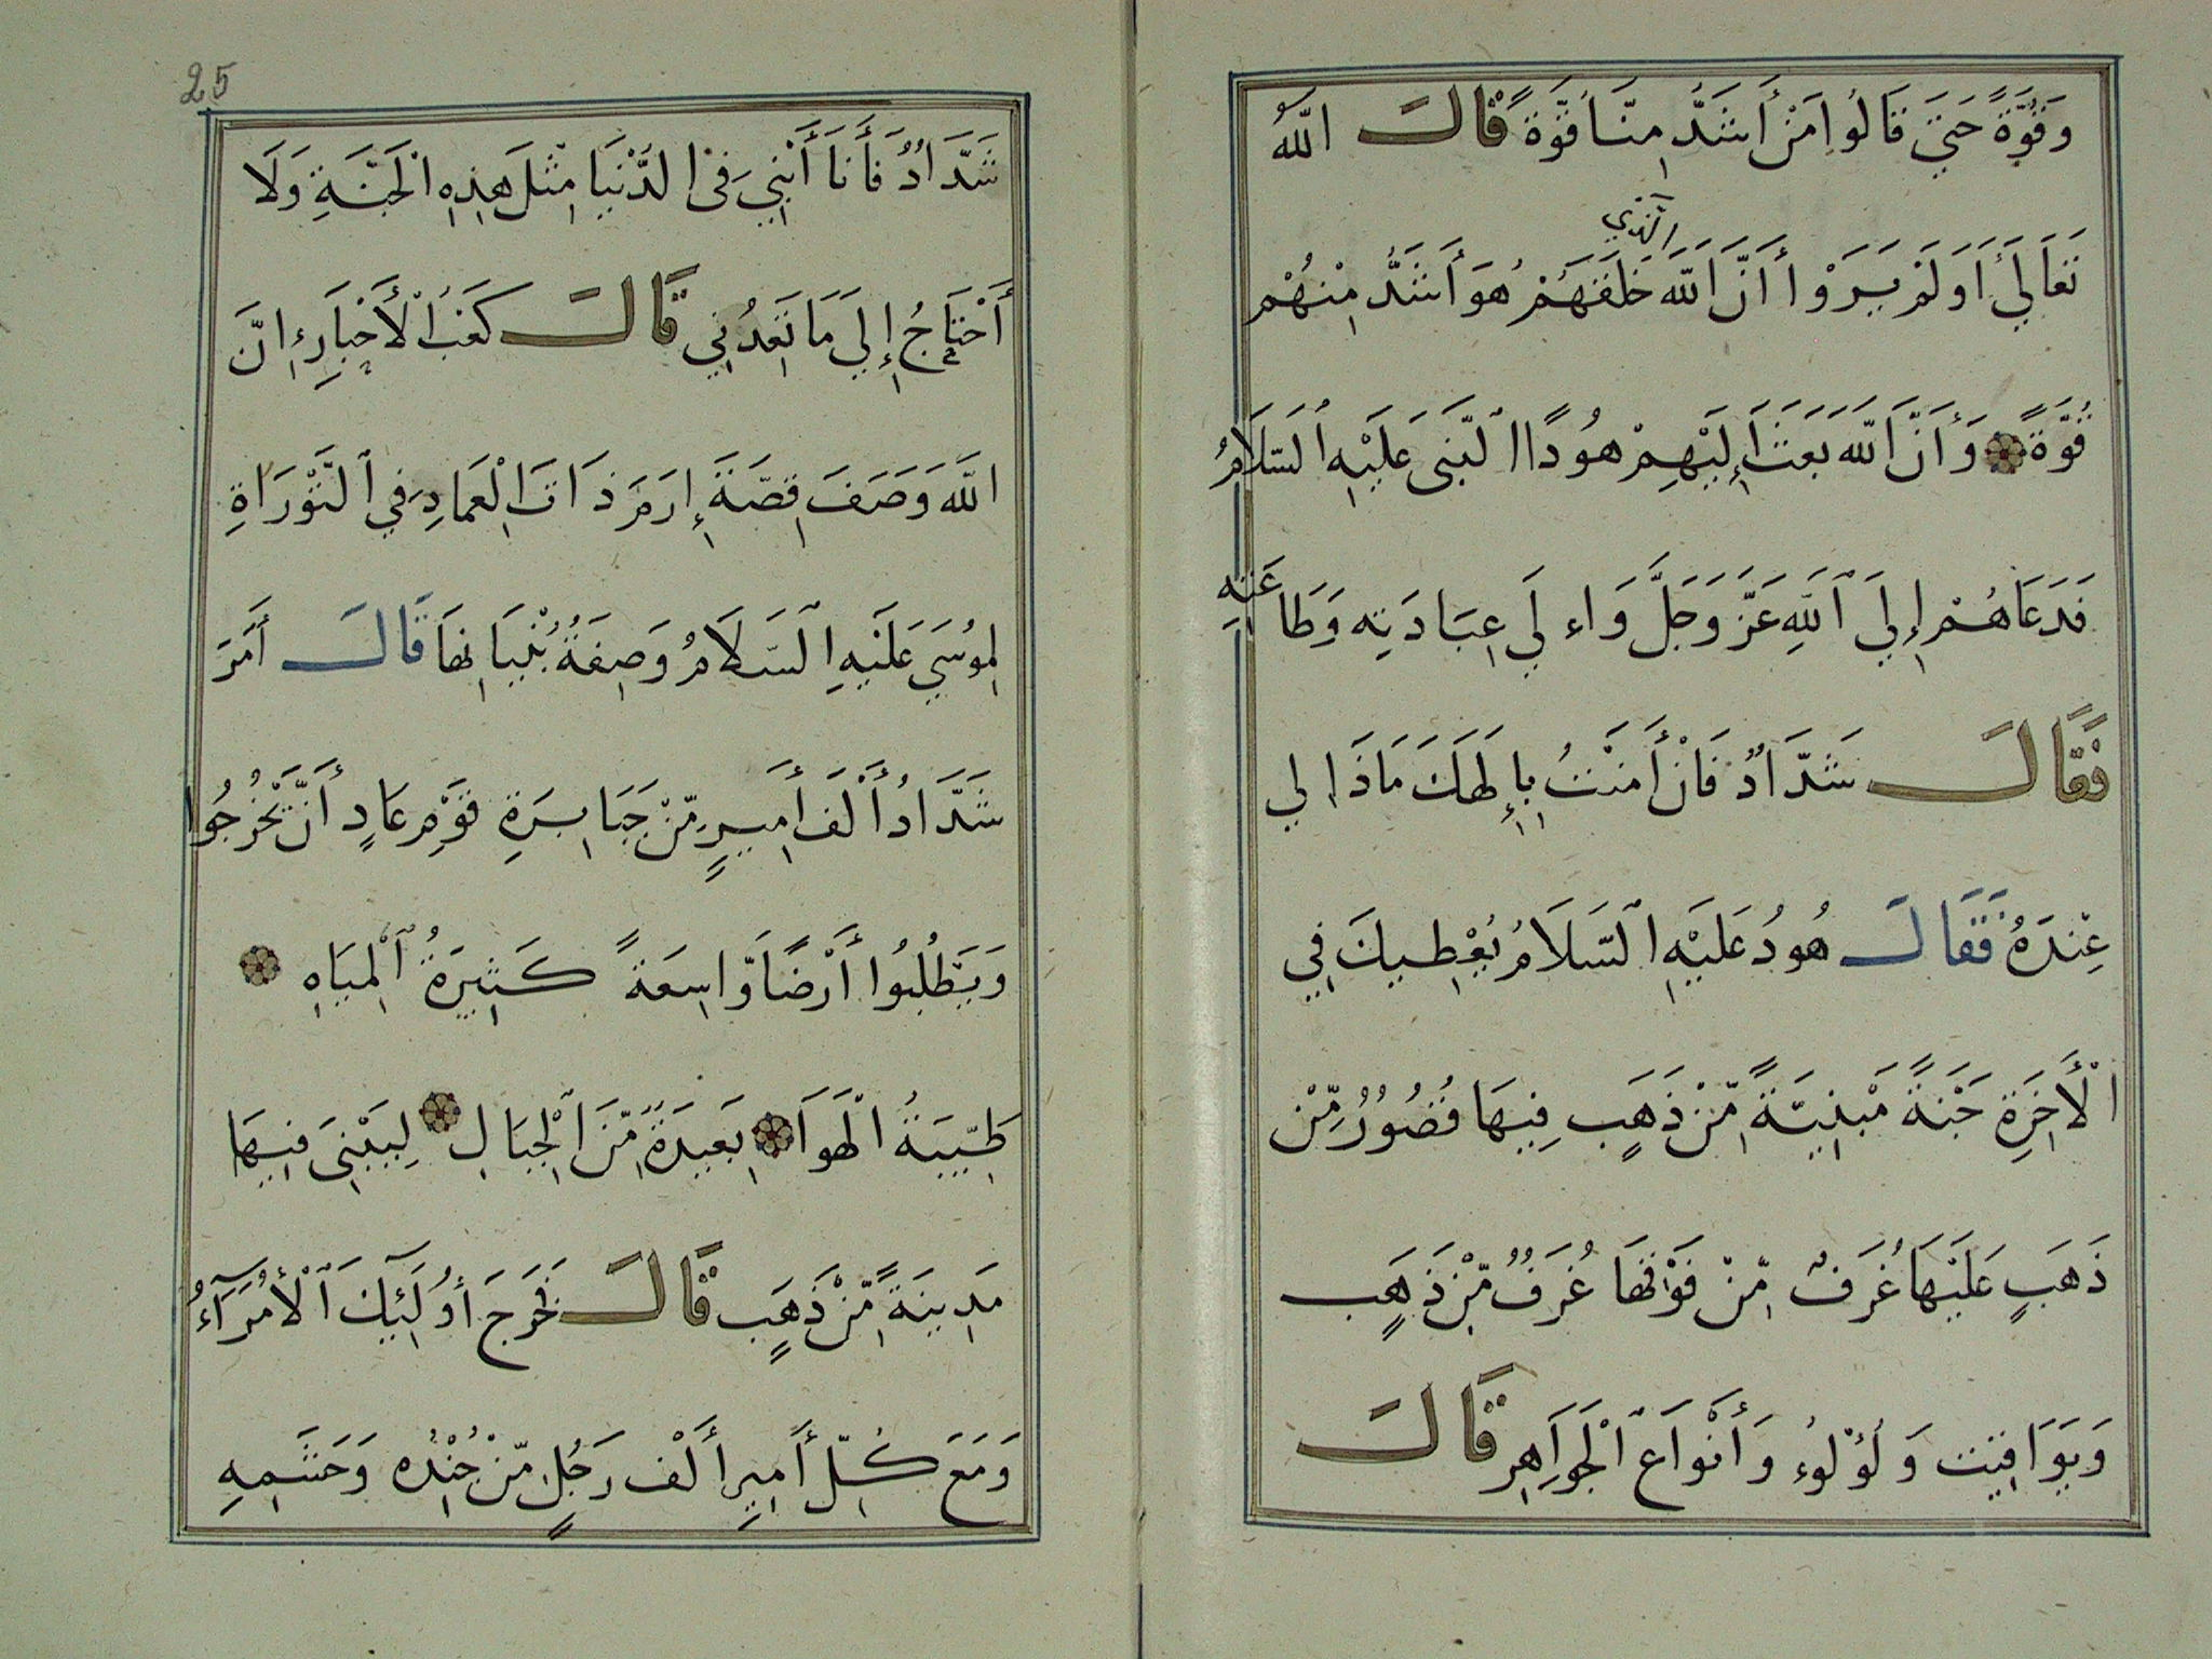 وَقُوَّةً حَتَيَّ قَالُوا مَنْ أَشَدُّ مِنَّا قُوَّةً قَالَ اللّٰهُ
الَّذِي
تَعَالَيٰ أَوَلَمْ يَرَوْا أَنَّ اللّٰهَ خَلَقَهُمْ هُوَ أَشَدُّ مِنْهُمْ
قُوَّةً وَأَنَّ اللّٰهَ بَعَثَ إِلَيْهِمْ هُودًا النَّبِىَّ عَلَيْهِ السَّلَامُ
فَدَعَاهُمْ إِلَيَ اللّٰهِ عَزَّ وَجَلَّ وَاءلَي عِبَادَتِهِ وَطَاعَتِهِ
فَقَالَ شَدَّادُ فَانْ أَمَنْتُ بِإِلَهِكَ مَاذَا لِي
عِنْدَهُ فَقَالَ هُودُ عَلَيْهِ السَّلَامُ يُعْطِيكَ فِي
الْأَخِرَةِ جَنَّةً مَبْنِيَّةً مِّنْ ذَهَبٍ فِيهَا قُصُورٌ مِّنْ
ذَهَبٍ عَلَيْهَا غُرَفٌ مِّنْ فَوْقِهَا غُرَفٌ مِّنْ ذَهَبٍ
وَيَوَاقِيت وَلُؤْلُوءُ وَأَنْوَاعَ الْجَوَاهِرِ قَالَ
25
شَدَّادُ فَأَنَا أَبْنِي فِى الدُّنْيَا مِثْلَ هٰذِهِ الْجَنَّةِ وَلَا
أَحْتَاجُ إِلَيَ مَا تَعِدُنِي قَالَ كَعْبُ الْأَحْبَارِ إِنَّ
اللّٰهَ وَصَفَ قِصَّةَ إِرَمَ ذَاتَ الْعِمَادِ فِي التَّوْرَاةِ
لِمُوسَي عَلَيْهِ السَّلَامُ وَصِفَةُ بُنْيَانِهَا قَالَ أَمَرَ
شَدَّادُ أَلْفَ أَمِيرٍ مِّنْ جَبَابِرَةِ قَوْمِ عَادٍ أَنْ يَّخْرُجُوا
وَيَطْلُبُوا أَرْضًا وَّاسِعَةً كَثِيرَةُ الْمِيَاهِ
طَيِّبَةُ الْهَوَا بَعِيدَةً مِّنَ الْجِبَالِ لِيَبْنِىَ فِيهَا
مَدِينَةً مِّنْ ذَهَبٍ قَالَ فَخَرَجَ أُولَئِكَ الْأُمَرَآءُ
وَمَعَ كُلِّ أَمِيرِ أَلْف رَجُلٍ مِّنْ جُنْدِهِ وَحَشَمِهِ